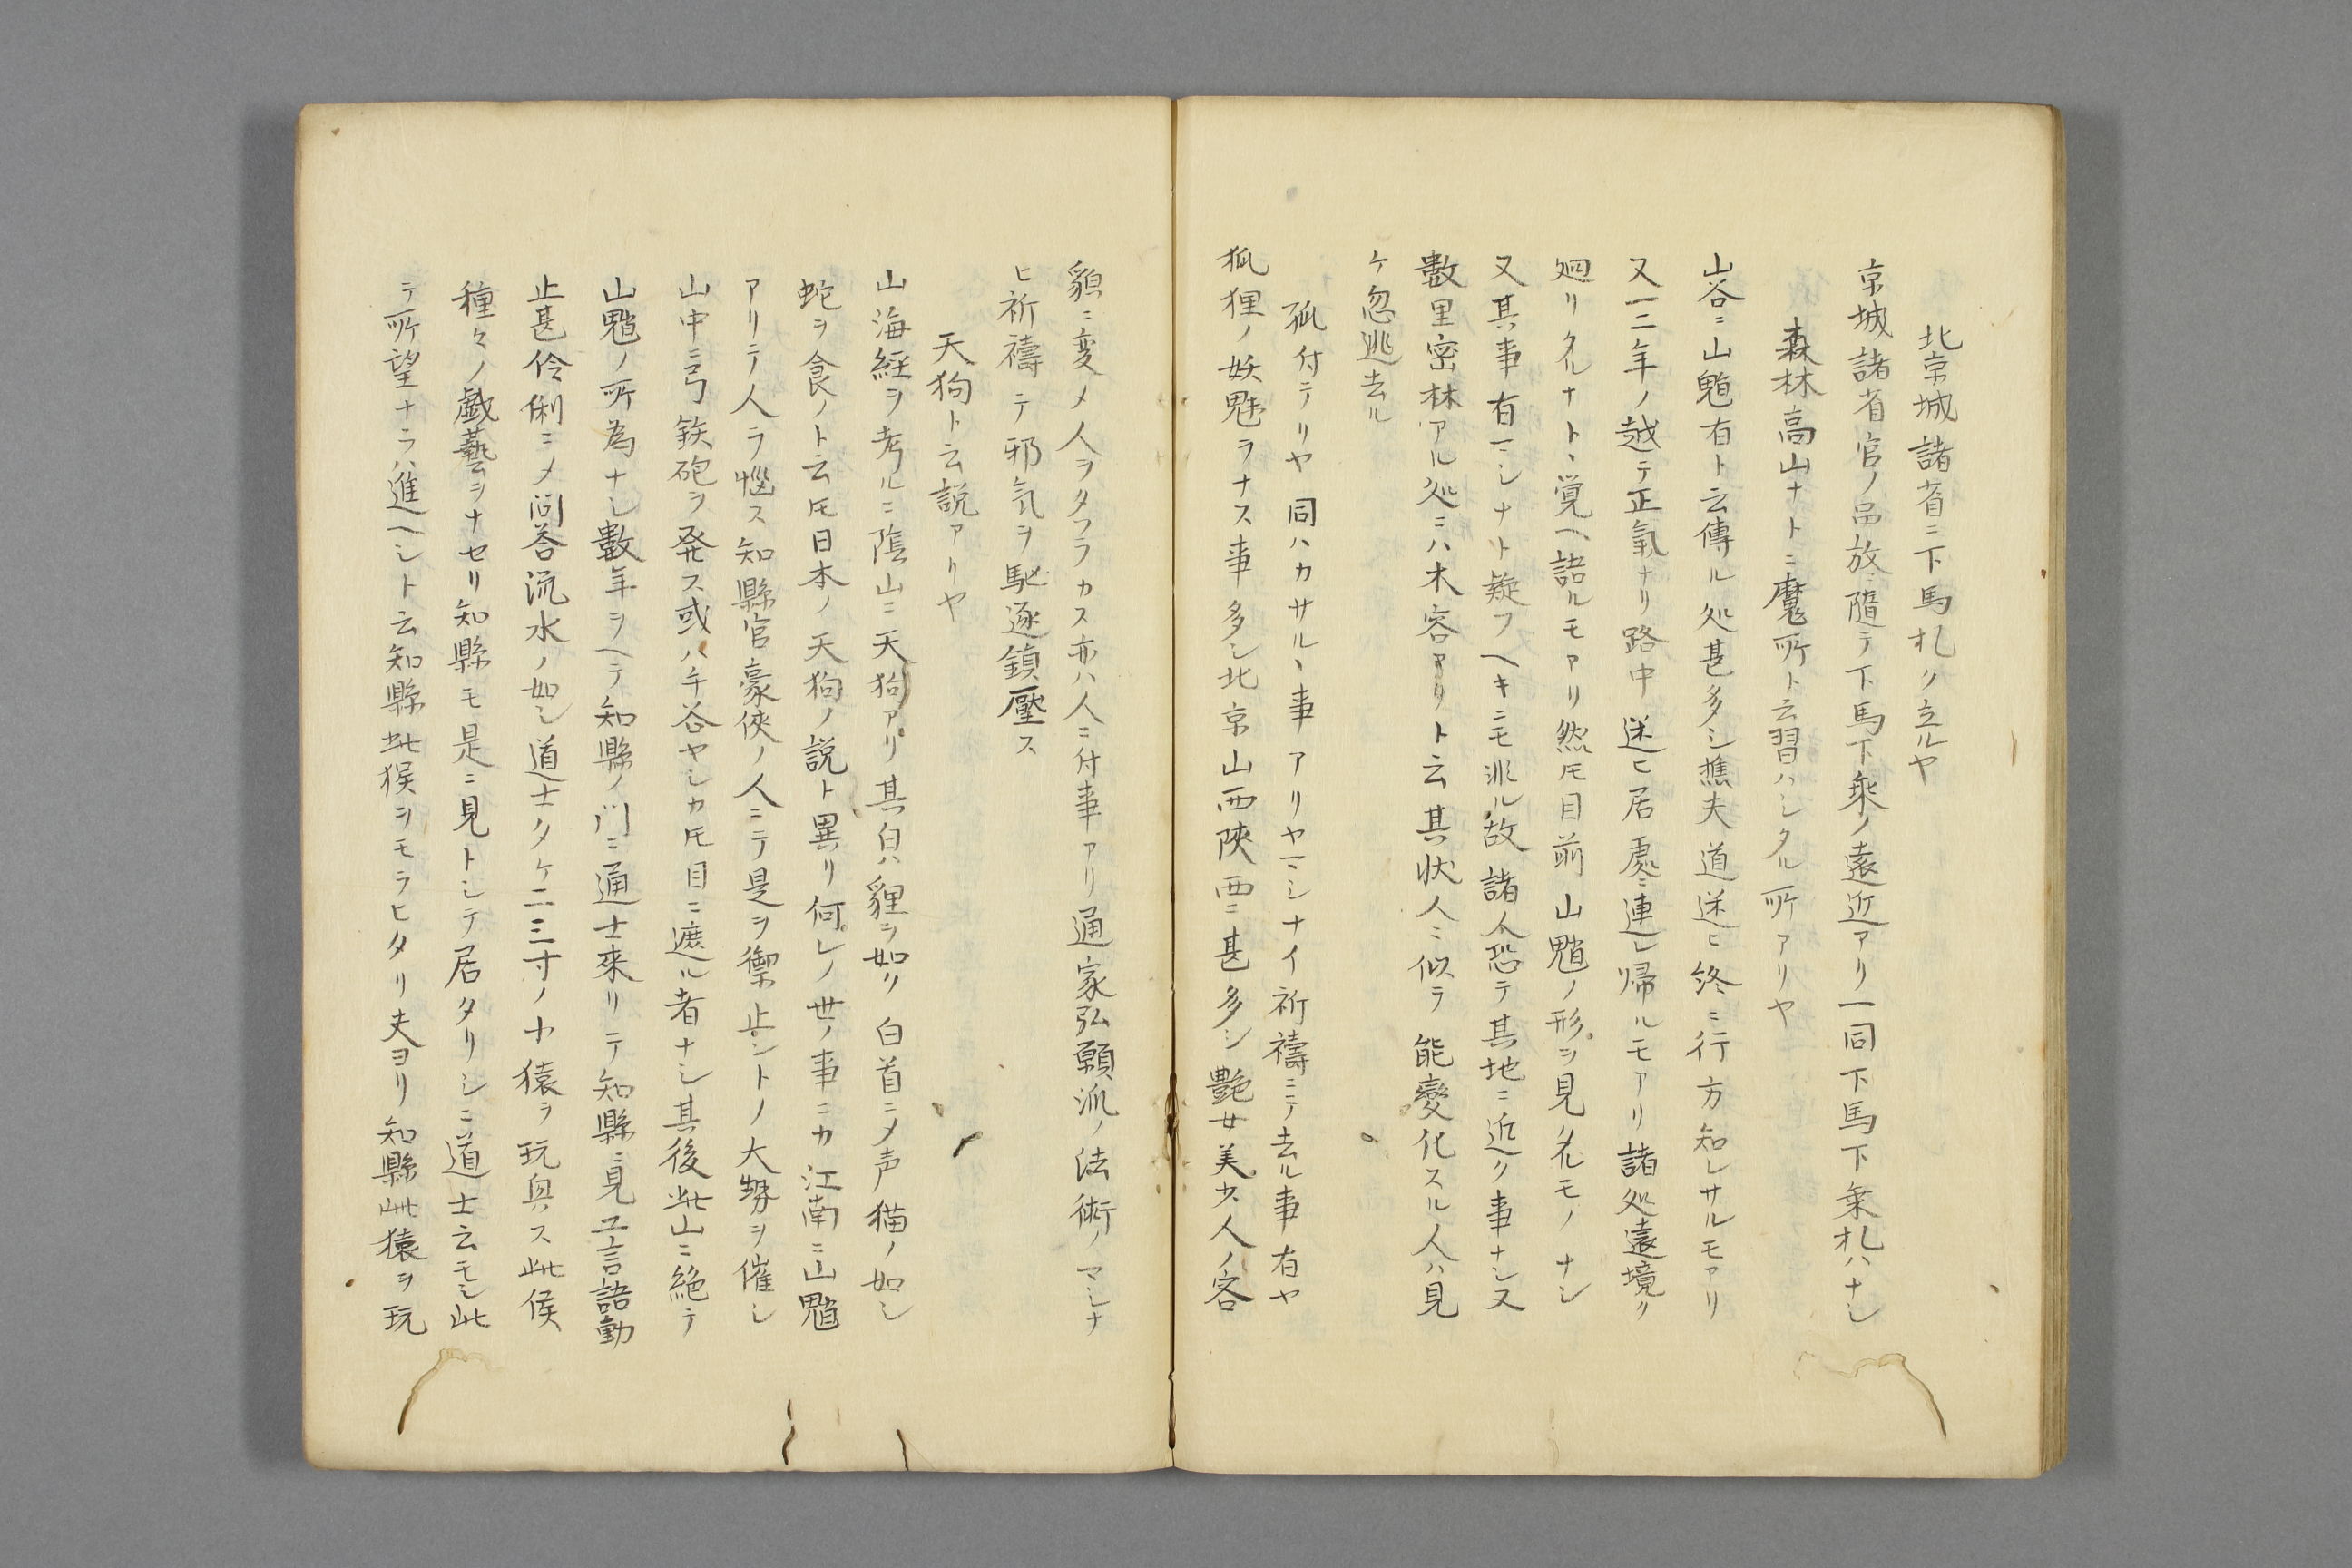 北京城諸省ニ下馬札ノ立ルヤ
京城諸省官ノ品放ニ隨テ下馬下乘ノ遠近アリ一同下馬下乗札ハナシ
森林高山ナトニ魔所ト云習ハシタル所アリヤ
山谷ニ山魈有ト云傳ル処甚多シ樵夫道迷ヒ終ニ行方知レサルモアリ
又一二年ノ越テ正氣ナリ路中迷ヒ居處ニ連レ帰ルモアリ諸処遠境ク
廻リタルナト、覚ヘ語ルモアリ然ㇳモ目前山魈ノ形ヲ見タルモノナシ
又其事有マシナト疑フヘキニモ非ル故諸人恐テ其地ニ近ク事ナシ又
數里密林アル処ニハ木客アリト云其状人ニ似テ能變化スル人ハ見
ケ忽逃去ル
狐付テリヤ同ハカサル、事アリヤマシナイ祈禱ニテ去ル事有ヤ
狐狸ノ妖魅ヲナス事多シ北京山西陝西ニ甚多シ艶女美少人ノ容
貌ニ変メ人ヲタフラカス亦ハ人ニ付事アリ通家弘願派ノ法術ノマシナ
ヒ祈禱テ邪気ヲ馳逐鎮壓ス
天狗ト云説アリヤ
山海経ヲ考ルニ陰山ニ天狗アリ其白ハ貍ヲ如ク白首ニメ声猫ノ如シ
蛇ヲ食ノト云ㇳモ日本ノ天狗ノ説ト異リ何レノ世ノ事ニカ江南ニ山魈
アリテ人ラ惱ス知縣官豪俠ノ人ニテ是ヲ禦止ントノ大勢ヲ催シ
山中ニ弓鉄砲ヲ発ス或ハ午谷ヤシカㇳモ目ニ遮ル者ナシ其後此山ニ絶テ
山魈ノ所為ナシ數年ヲヘテ知縣ノ門ニ通士來リテ知縣ニ見ユ言語動
止甚伶俐ニメ問答流水ノ如シ道士タケ二三寸ノ小猿ヲ玩臾ス此侯
種々ノ戯藝ヲナセリ知縣モ是ニ見トシテ居タリシニ道士云モシ此
テ所望ナラハ進ヘシト云知縣此猴ヲモラヒタリ夫ヨリ知縣此猿ヲ玩